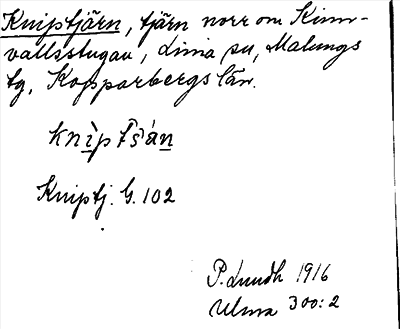 Kniptjärn, tjärn norr om Kinn-
vallsstugan, Lima sn, Malungs
tg, Kopparbergs län.
knìp tšán
Kniptj. G. 102
P. Lundh 1916
Ulma 300:2